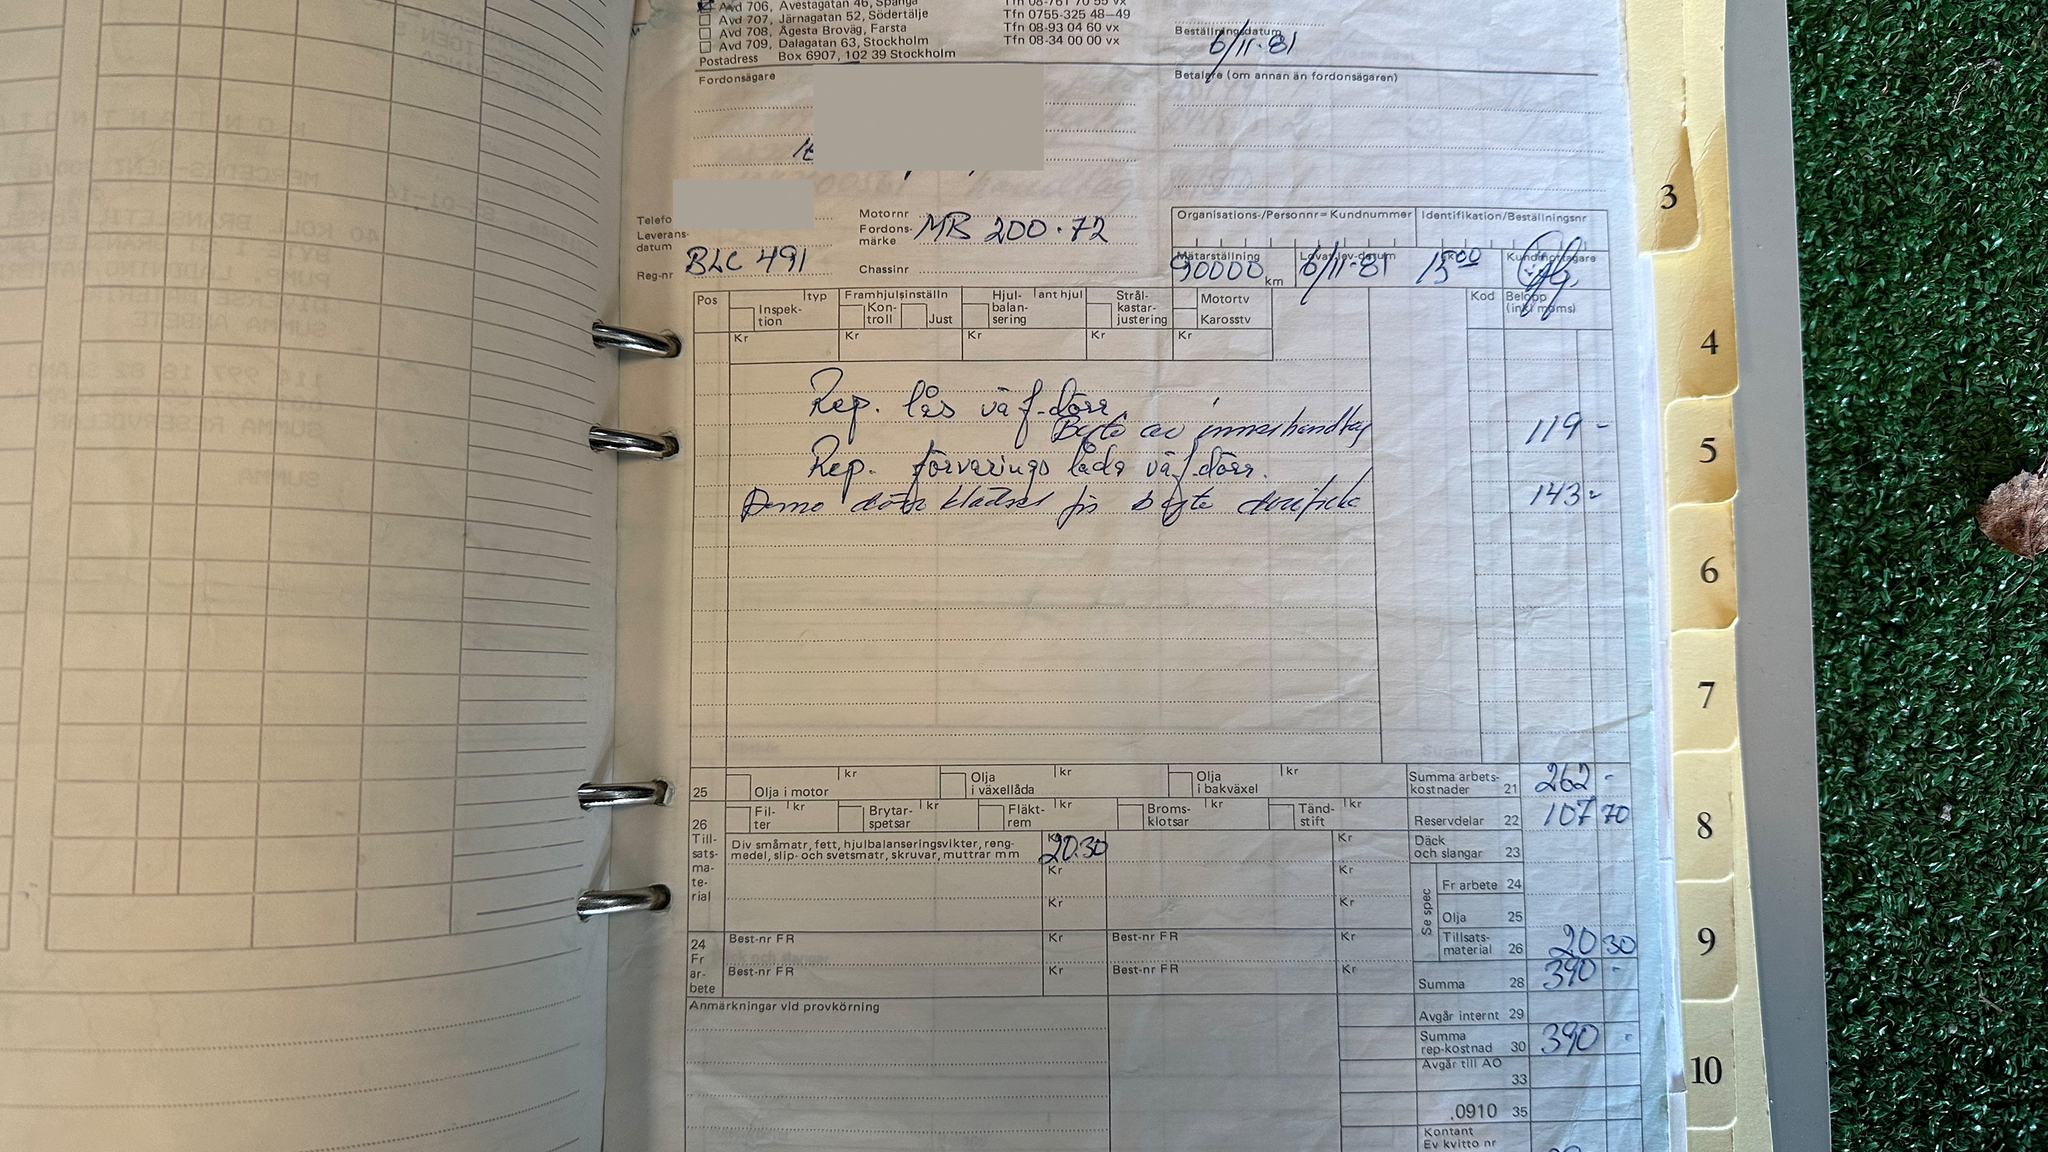 Avd 706, Avestagatan 46, Spånga Tfn 08-761 70 55 vx
Avd 707, Järnagatan 52, Södertälje Tfn 0755-325 48–49
Avd 708, Ågesta Broväg, Farsta Tfn 08-93 04 60 vx
Avd 709, Dalagatan 63, Stockholm Tfn 08-34 00 00 vx
Postadress Box 6907, 102 39 Stockholm
Beställningsdatum
6/11-81
Fordonsägare
Betalare (om annan än fordonsägaren)
Telefo
Leverans-
datum
Reg-nr BLC 491
Motornr
Fordons-
märke MB 200 · 72
Chassinr
Organisations-/Personnr = Kundnummer
Identifikation/Beställningsnr
Mätarställning
90000 km
6/11-81
15 00
Kundmottagare
Pos
typ
Inspek-
tion
Kr
Framhjulsinställn
Kon-
troll
Just
Kr
Hjul-
balan-
sering
ant hjul
Kr
Strål-
kastar-
justering
Kr
Motortv
Karosstv
Kr
Kod
Belopp
(inkl moms)
Rep. lås vä f-dörr.
Byte av innerhandtag 119 -
Rep. förvarings låda vä f.dörr.
Demo dörr klädsel för byte 143 -
25
Olja i motor kr
Olja
i växellåda kr
Olja
i bakväxel kr
Summa arbets-
kostnader 21 262 -
26
Fil-
ter kr
Brytar-
spetsar kr
Fläkt-
rem kr
Broms-
klotsar kr
Tänd-
stift kr
Reservdelar 22 107 70
Till-
sats-
ma-
te-
rial
Div småmatr, fett, hjulbalanseringsvikter, reng-
medel, slip- och svetsmatr, skruvar, muttrar mm
Kr
20.30
Kr
Kr
Kr
Kr
Kr
Däck
och slangar 23
Se spec
Fr arbete 24
Olja 25
Tillsats-
material 26 20 30
24
Fr
ar-
bete
Best-nr FR Kr Best-nr FR Kr
Best-nr FR Kr Best-nr FR Kr
Summa 28 390 -
Anmärkningar vid provkörning
Avgår internt 29
Summa
rep-kostnad 30 390 -
Avgår till AO
33
.0910 35
Kontant
Ev kvitto nr
3
4
5
6
7
8
9
10